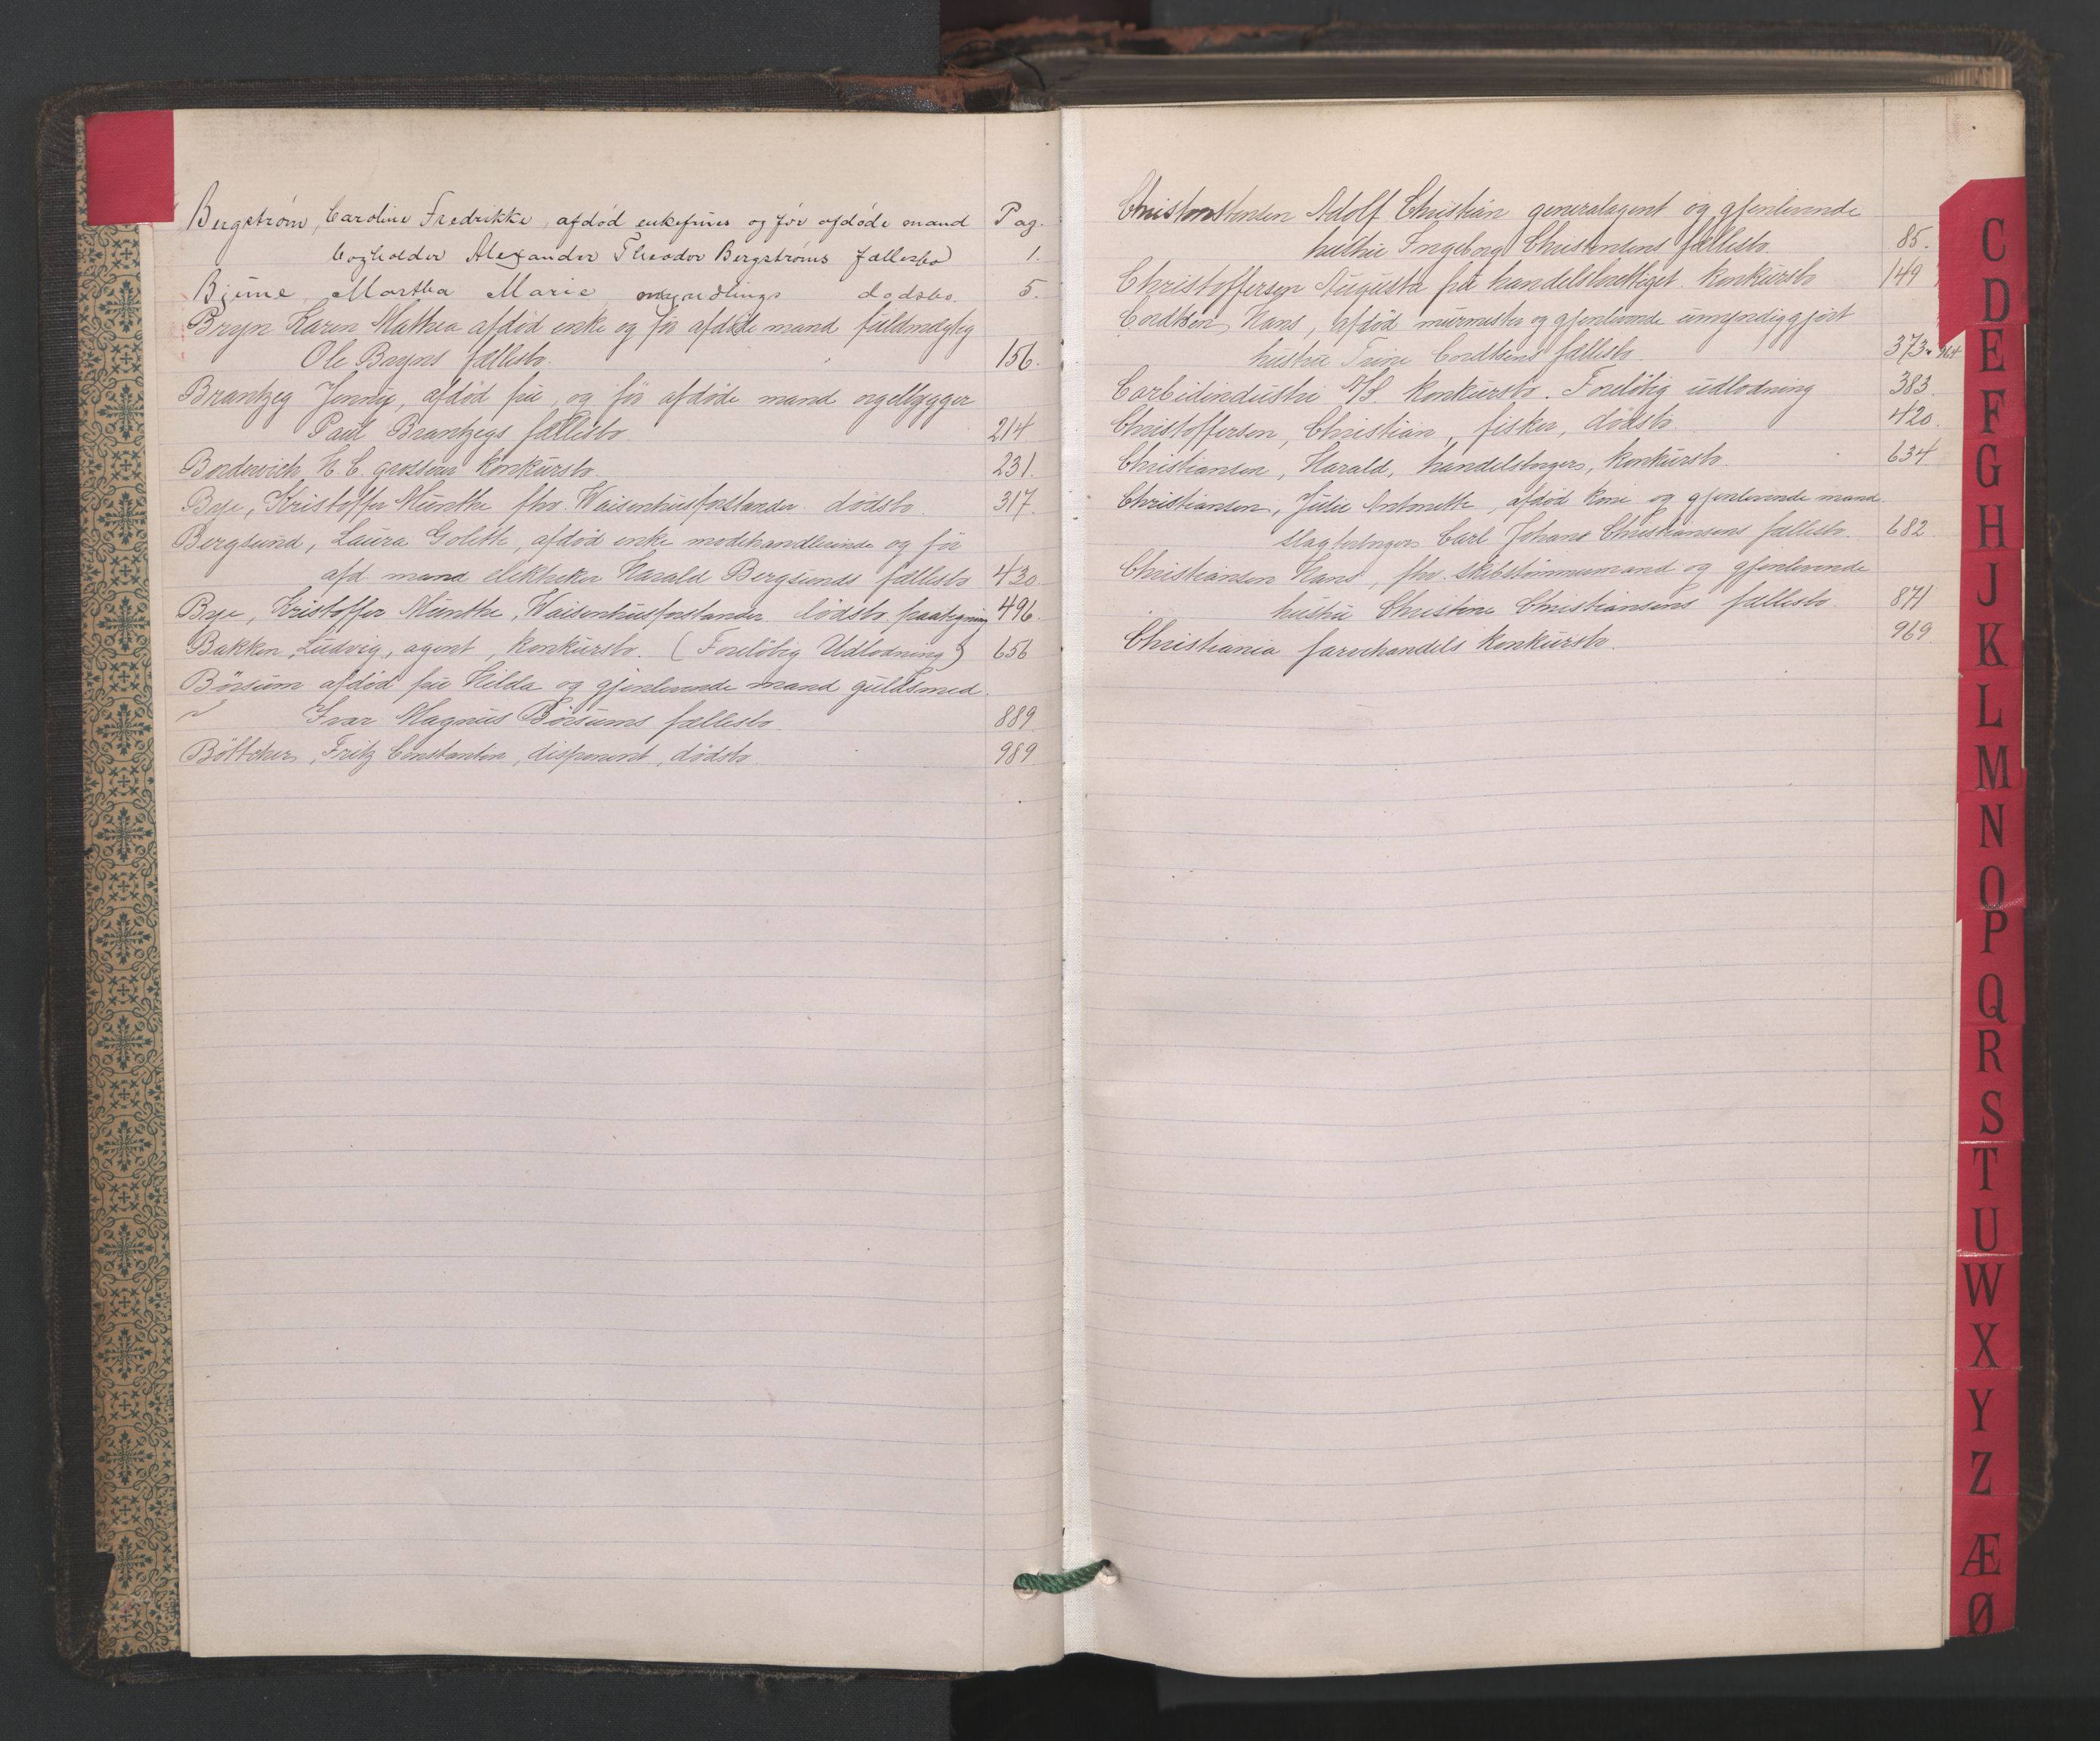 Bergström, Caroline Fredrikke, afdød enkefrues og før afdøde mand Pag.
bogholder Alexander Theodor Bergströms fællesbo 1.
Bjune, Martha Marie, myndlings dødsbo. 5.
Bryn Karen Mathea afdød enke og før afdøde mand fuldmægtig
Ole Bryns fællesbo. 156.
Brantzeg Jenny, afdød frue, og før afdøde mand orgelbygger
Paul Brantzegs fællesbo. 214
Borderwich H. C. grosserer konkursbo. 231.
Bye, Kristoffer Munthe fhv. Waisenhusforstander dødsbo. 317.
Bergsund, Laura Golette, afdød enke modehandlerinde og før
afd. mand elektriker Harald Bergsunds fællesbo 430.
Bye, Kristoffer Munthe, Waisenhusforstander. dödsbo. paategning 496.
Bakken, Ludvig, agent, konkursbo. (Foreløbig Udlodning) 656
Börsum afdød frue Hilda og gjenlevende mand guldsmed
Ivar Magnus Börsums fællesbo 889
Böttcher, Fritz Constantin, disponent, dødsbo 989
Christensen Adolf Christian generalagent og gjenlevende
hustru Ingeborg Christensens fællesbo 85.
Christoffersen Augusta frk handelsberettiget. konkursbo 149
Cordtsen, Hans, afdød murmester og gjenlevende umyndiggjort
hustru Trine Cordtsens fællesbo. 373.
Carbidindustri A/S. konkursbo. Foreløbig udlodning 383.
Christoffersen, Christian, fisker, dødsbo 420.
Christiansen, Harald, handelsborger, konkursbo. 634
Christiansen, Julie Antonette, afdød kone og gjenlevende mand
slagterborger Carl Johans Christiansens fællesbo. 682
Christiansen Hans, fhv. skibstømmermand og gjenlevende
hustru Christine Christiansens fællesbo. 871
Christiania farvehandels konkursbo. 969
C
D
E
F
G
H
J
K
L
M
N
O
P
Q
R
S
T
U
W
X
Y
Z
Æ
Ø